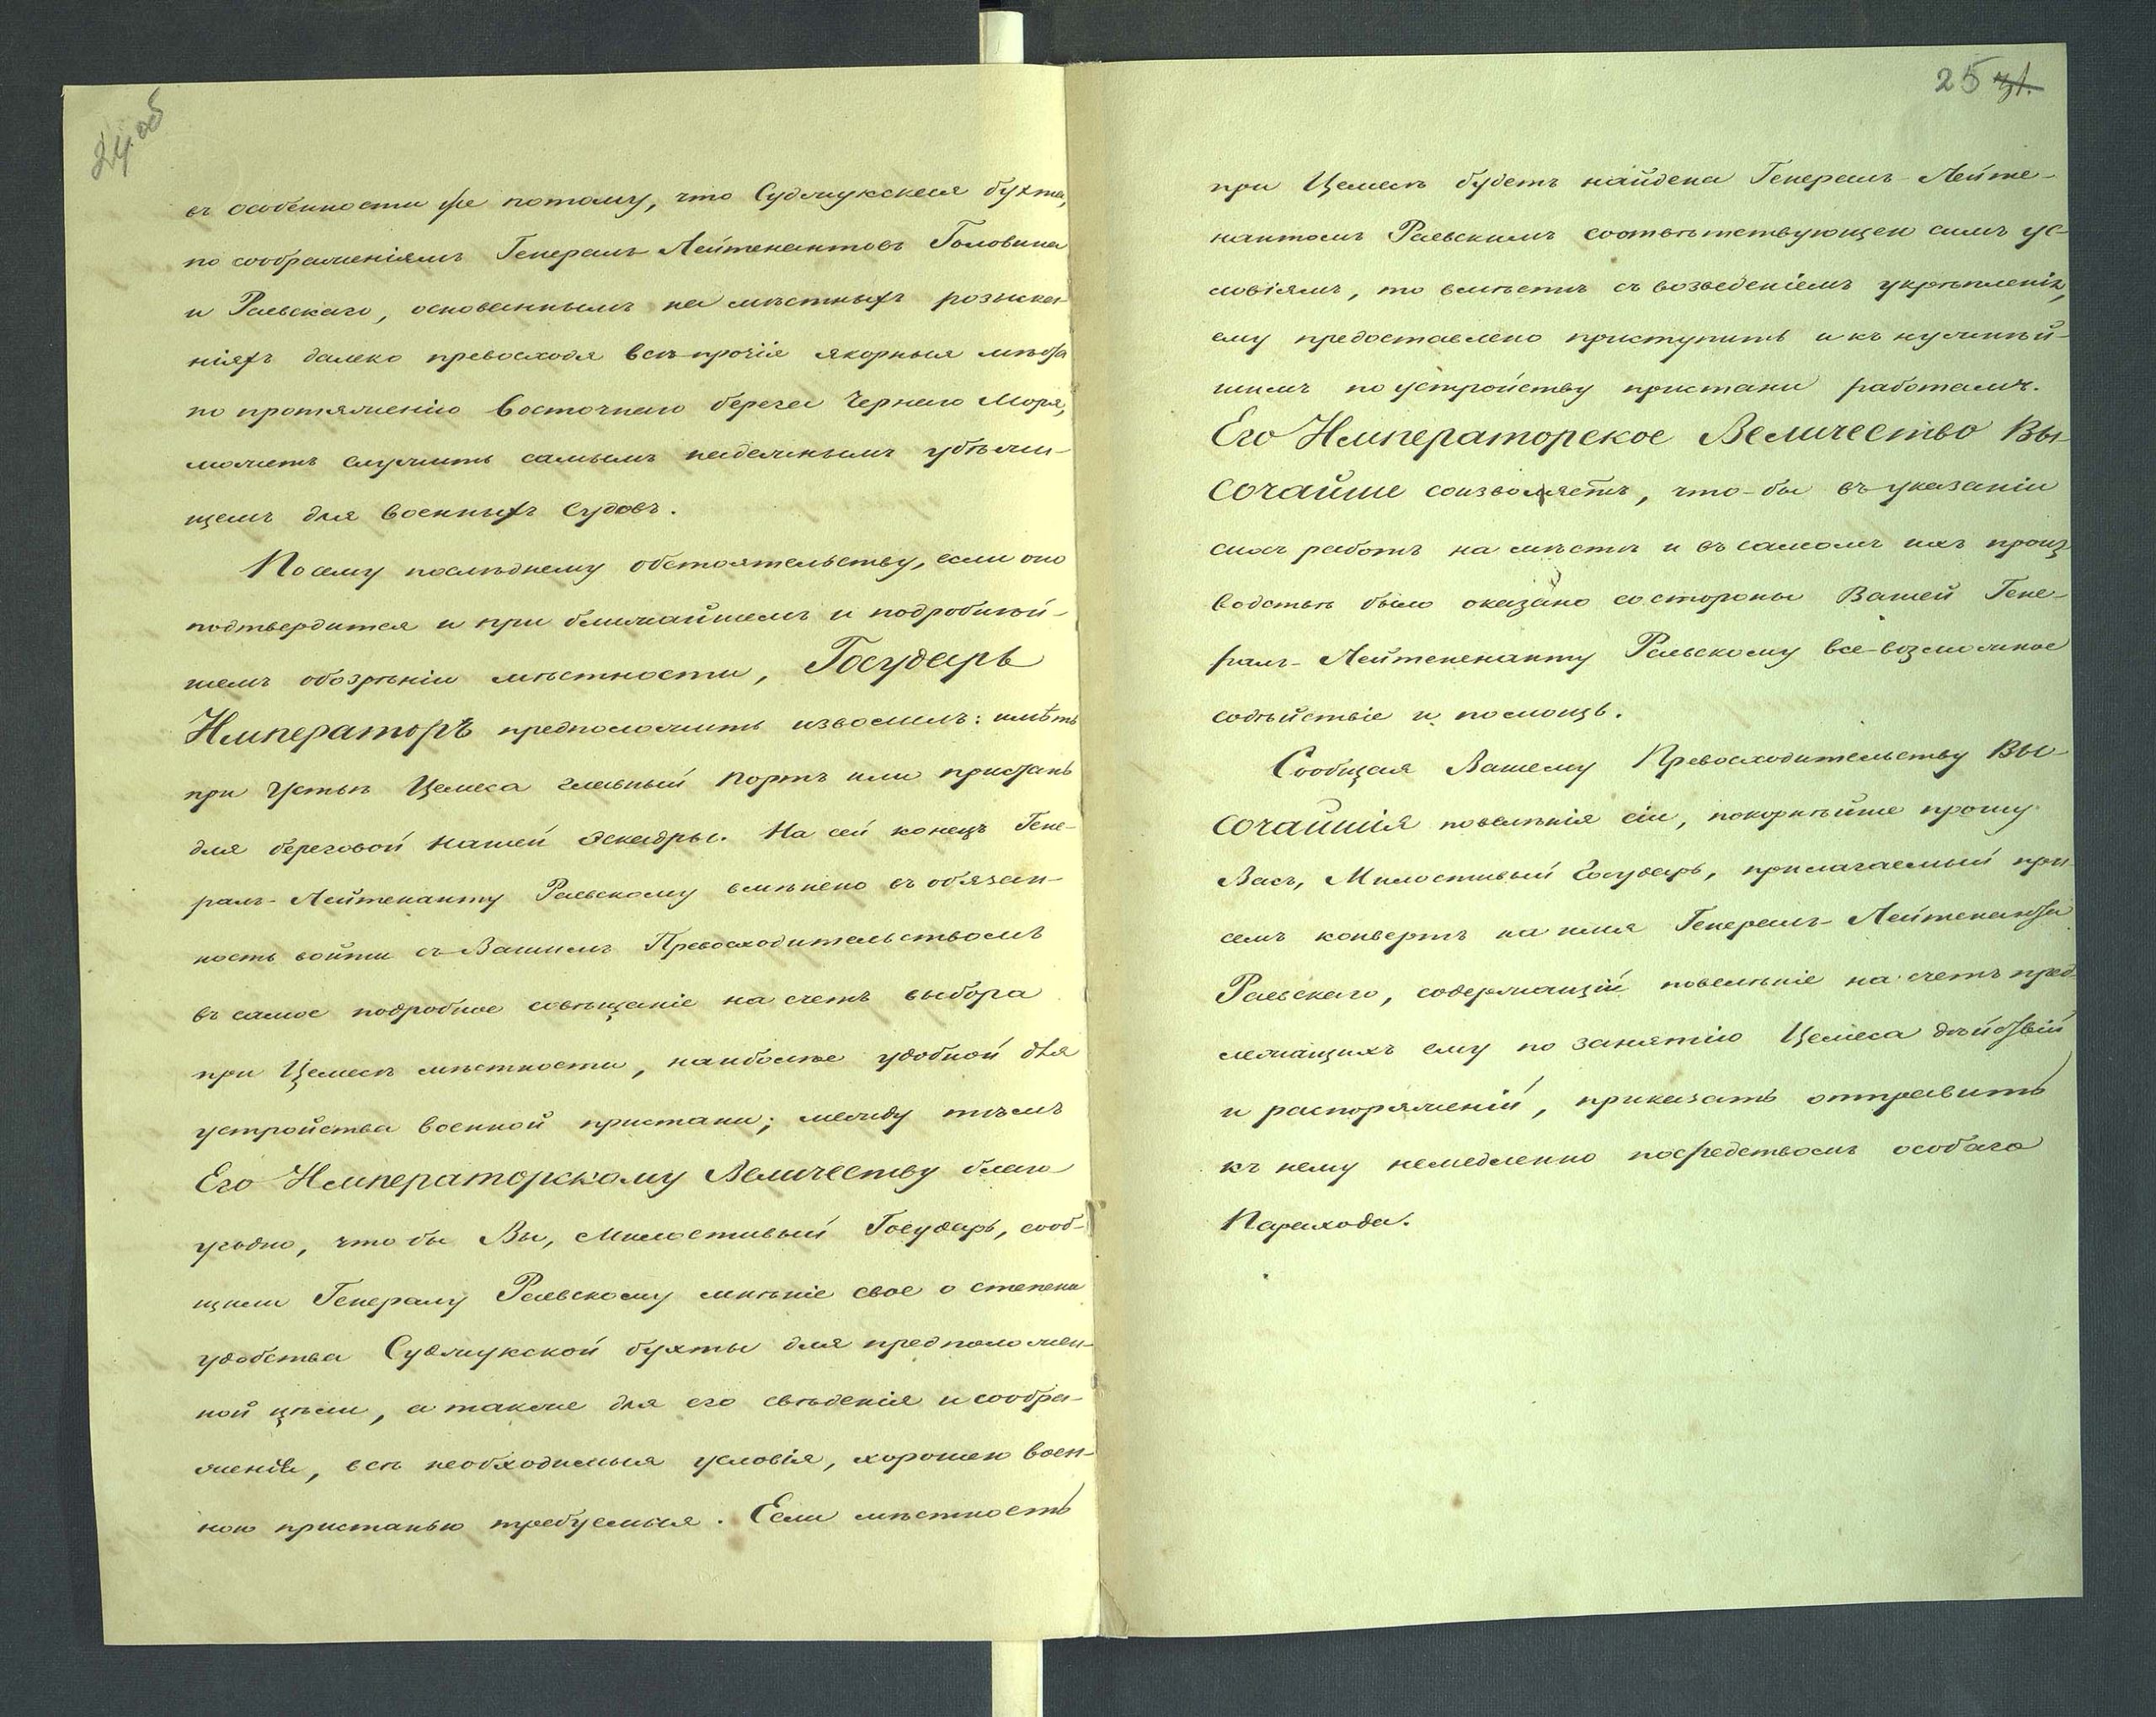 24 об
въ особенности же потому, что Суджукская бухта,
по соображеніямъ Генералъ-Лейтенантовъ Головина
и Раевскаго, основаннымъ на мѣстныхъ розыска-
ніяхъ далеко превосходя всѣ прочія якорныя мѣста
по протяженію восточнаго берега Чернаго Моря,
можетъ служить самымъ надежнымъ убѣжи-
щемъ для военныхъ судовъ.
По сему послѣднему обстоятельству, если оно
подтвердится и при ближайшемъ и подробнѣй-
шемъ обозрѣніи мѣстности, Государь
Императоръ предположить изволилъ: имѣть
при Устьѣ Цемеса главный портъ или пристань
для береговой нашей эскадры. На сей конецъ Гене-
ралъ-Лейтенанту Раевскому вмѣнено въ обязан-
ность войти съ Вашимъ Превосходительствомъ
въ самое подробное совѣщаніе на счетъ выбора
при Цемесѣ мѣстности, наиболѣе удобной для
устройства военной пристани; между тѣмъ
Его Императорскому Величеству благо-
угодно, что бы Вы, Милостивый Государь, сооб-
щили Генералу Раевскому мнѣніе свое о степени
удобства Суджукской бухты для предположен-
ной цѣли, а также для его свѣденія и сообра-
женія, всѣ необходимыя условія, хорошею воен-
ною пристанью требуемыя. Если мѣстность
25
при Цемесѣ будетъ найдена Генералъ-Лейте-
нантомъ Раевскимъ соотвѣтствующею симъ ус-
ловіямъ, то вмѣстѣ съ возведеніемъ укрѣпленія,
ему предоставлено приступить и къ нужнѣй-
шимъ по устройству пристани работамъ.
Его Императорское Величество Вы-
сочайше соизволяетъ, что-бы въ указаніи
сихъ работъ на мѣстѣ и въ самомъ ихъ произ-
водствѣ было оказано со стороны Вашей Гене-
ралъ-Лейтененанту Раевскому все-возможное
содѣйствіе и помощь.
Сообщая Вашему Превосходительству Вы-
сочайшія повелѣнія сіи, покорнѣйше прошу
Васъ, Милостивый Государь, прилагаемый при
семъ конвертъ на имя Генералъ-Лейтенанта
Раевскаго, содержащій повелѣніе на счетъ пред-
лежащихъ ему по занятію Цемеса дѣйствій
и распоряженій, приказать отправить
къ нему немедленно посредствомъ особаго
Парахода.